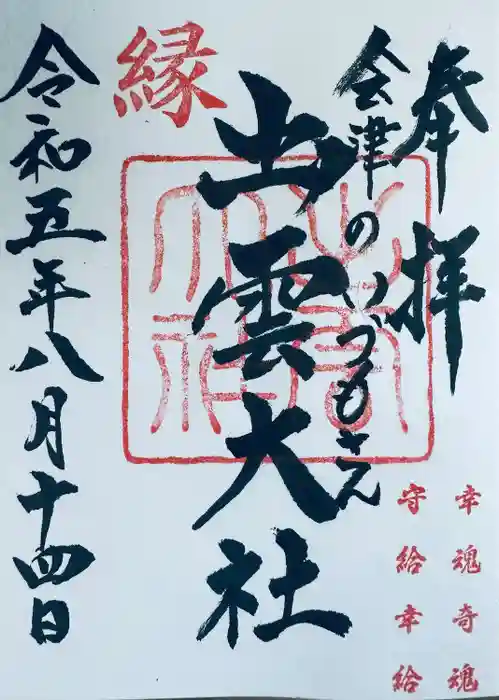 奉拝
会津のいづもさん
出雲大社
縁
令和五年八月十四日
幸魂奇魂
守給幸給
出雲大社